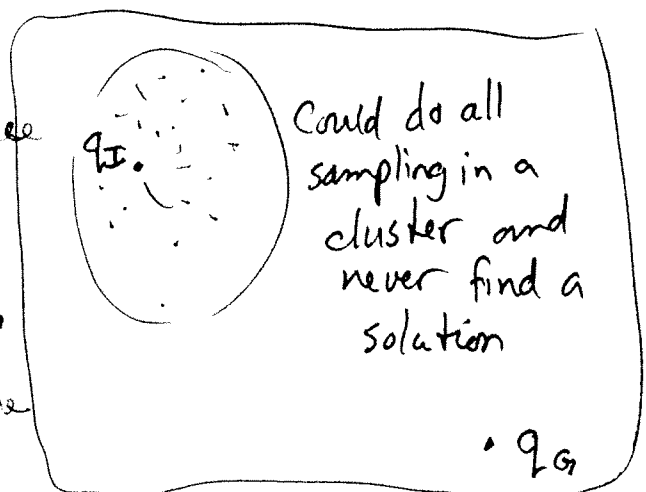 q_I
Could do all
sampling in a
cluster and
never find a
solution
q_G